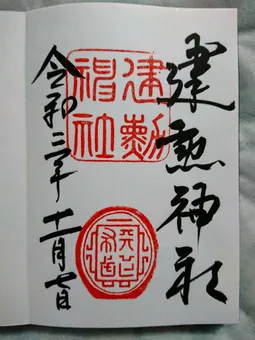 建勲神社
建勲神社
令和三年十一月七日